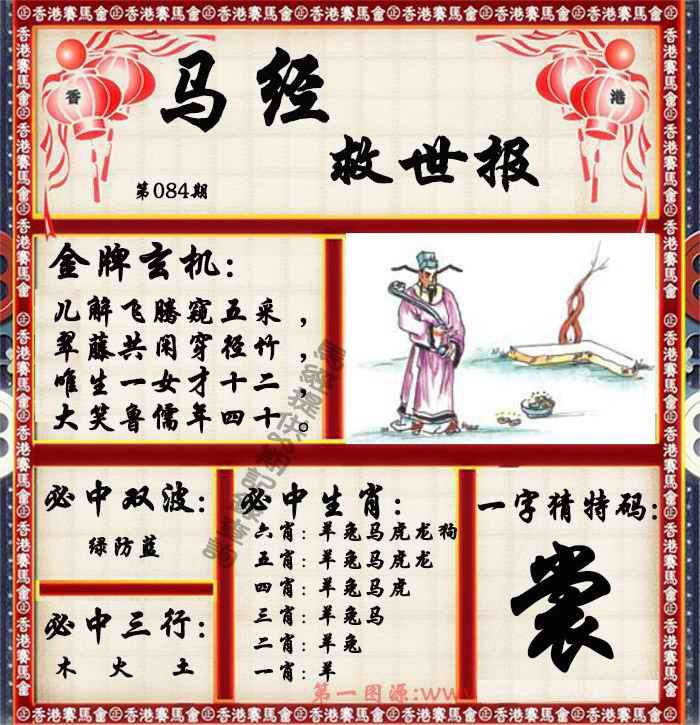 香港賽馬會
香
港
马经
救世报
第084期
金牌玄机：
儿解飞腾窥五采，
翠藤共闭穿径竹，
唯生一女才十二，
大笑鲁儒年四十。
必中双波：
绿防蓝
必中三行：
木 火 土
必中生肖：
六肖：羊兔马虎龙狗
五肖：羊兔马虎龙
四肖：羊兔马虎
三肖：羊兔马
二肖：羊兔
一肖：羊
一字猜特码：
裳
第一图源:www